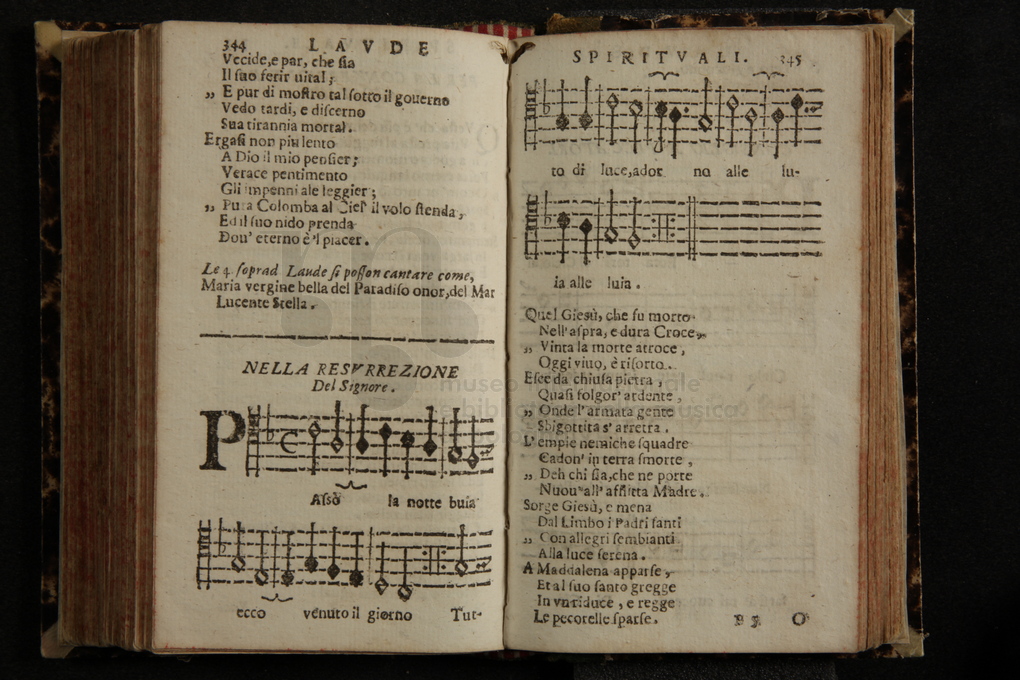 344 LAVDE
Vccide,e par, che ſia
Il ſuo ferir vital;
„ E pur di moſtro tal ſotto il gouerno
Vedo tardi, e diſcerno
Sua tirannia mortal.
Ergaſi non piu lento
A Dio il mio penſier;
Verace pentimento
Gli impenni ale leggier;
„ Pura Colomba al Ciel' il volo ſtenda,
Ed il ſuo nido prenda
Dou' eterno è 'l piacer.
Le 4 ſoprad Laude ſi poſſon cantare come,
Maria vergine bella del Paradiſo onor, del Mar
Lucente Stella.
NELLA RESVRREZIONE
Del Signore.
P
Aſſò la notte buia
ecco venuto il giorno Tut-
SPIRITVALI. 345
to di luce, ador no alle lu-
ia alle luia.
Quel Gieſù, che fu morto
Nell' aſpra, e dura Croce,
„ Vinta la morte atroce,
Oggi viuo, è riſorto.
Eſce da chiuſa pietra,
Quaſi folgor' ardente,
„ Onde l' armata gente
Sbigottita s' arretra.
L' empie nemiche ſquadre
Cadon' in terra ſmorte,
„ Deh chi ſia, che ne porte
Nuou' all' afflitta Madre.
Sorge Gieſù, e mena
Dal Limbo i Padri ſanti
„ Con allegri ſembianti
Alla luce ſerena.
A Maddalena apparſe,
Et al ſuo ſanto gregge
In vn riduce, e regge
Le pecorelle ſparſe.
O